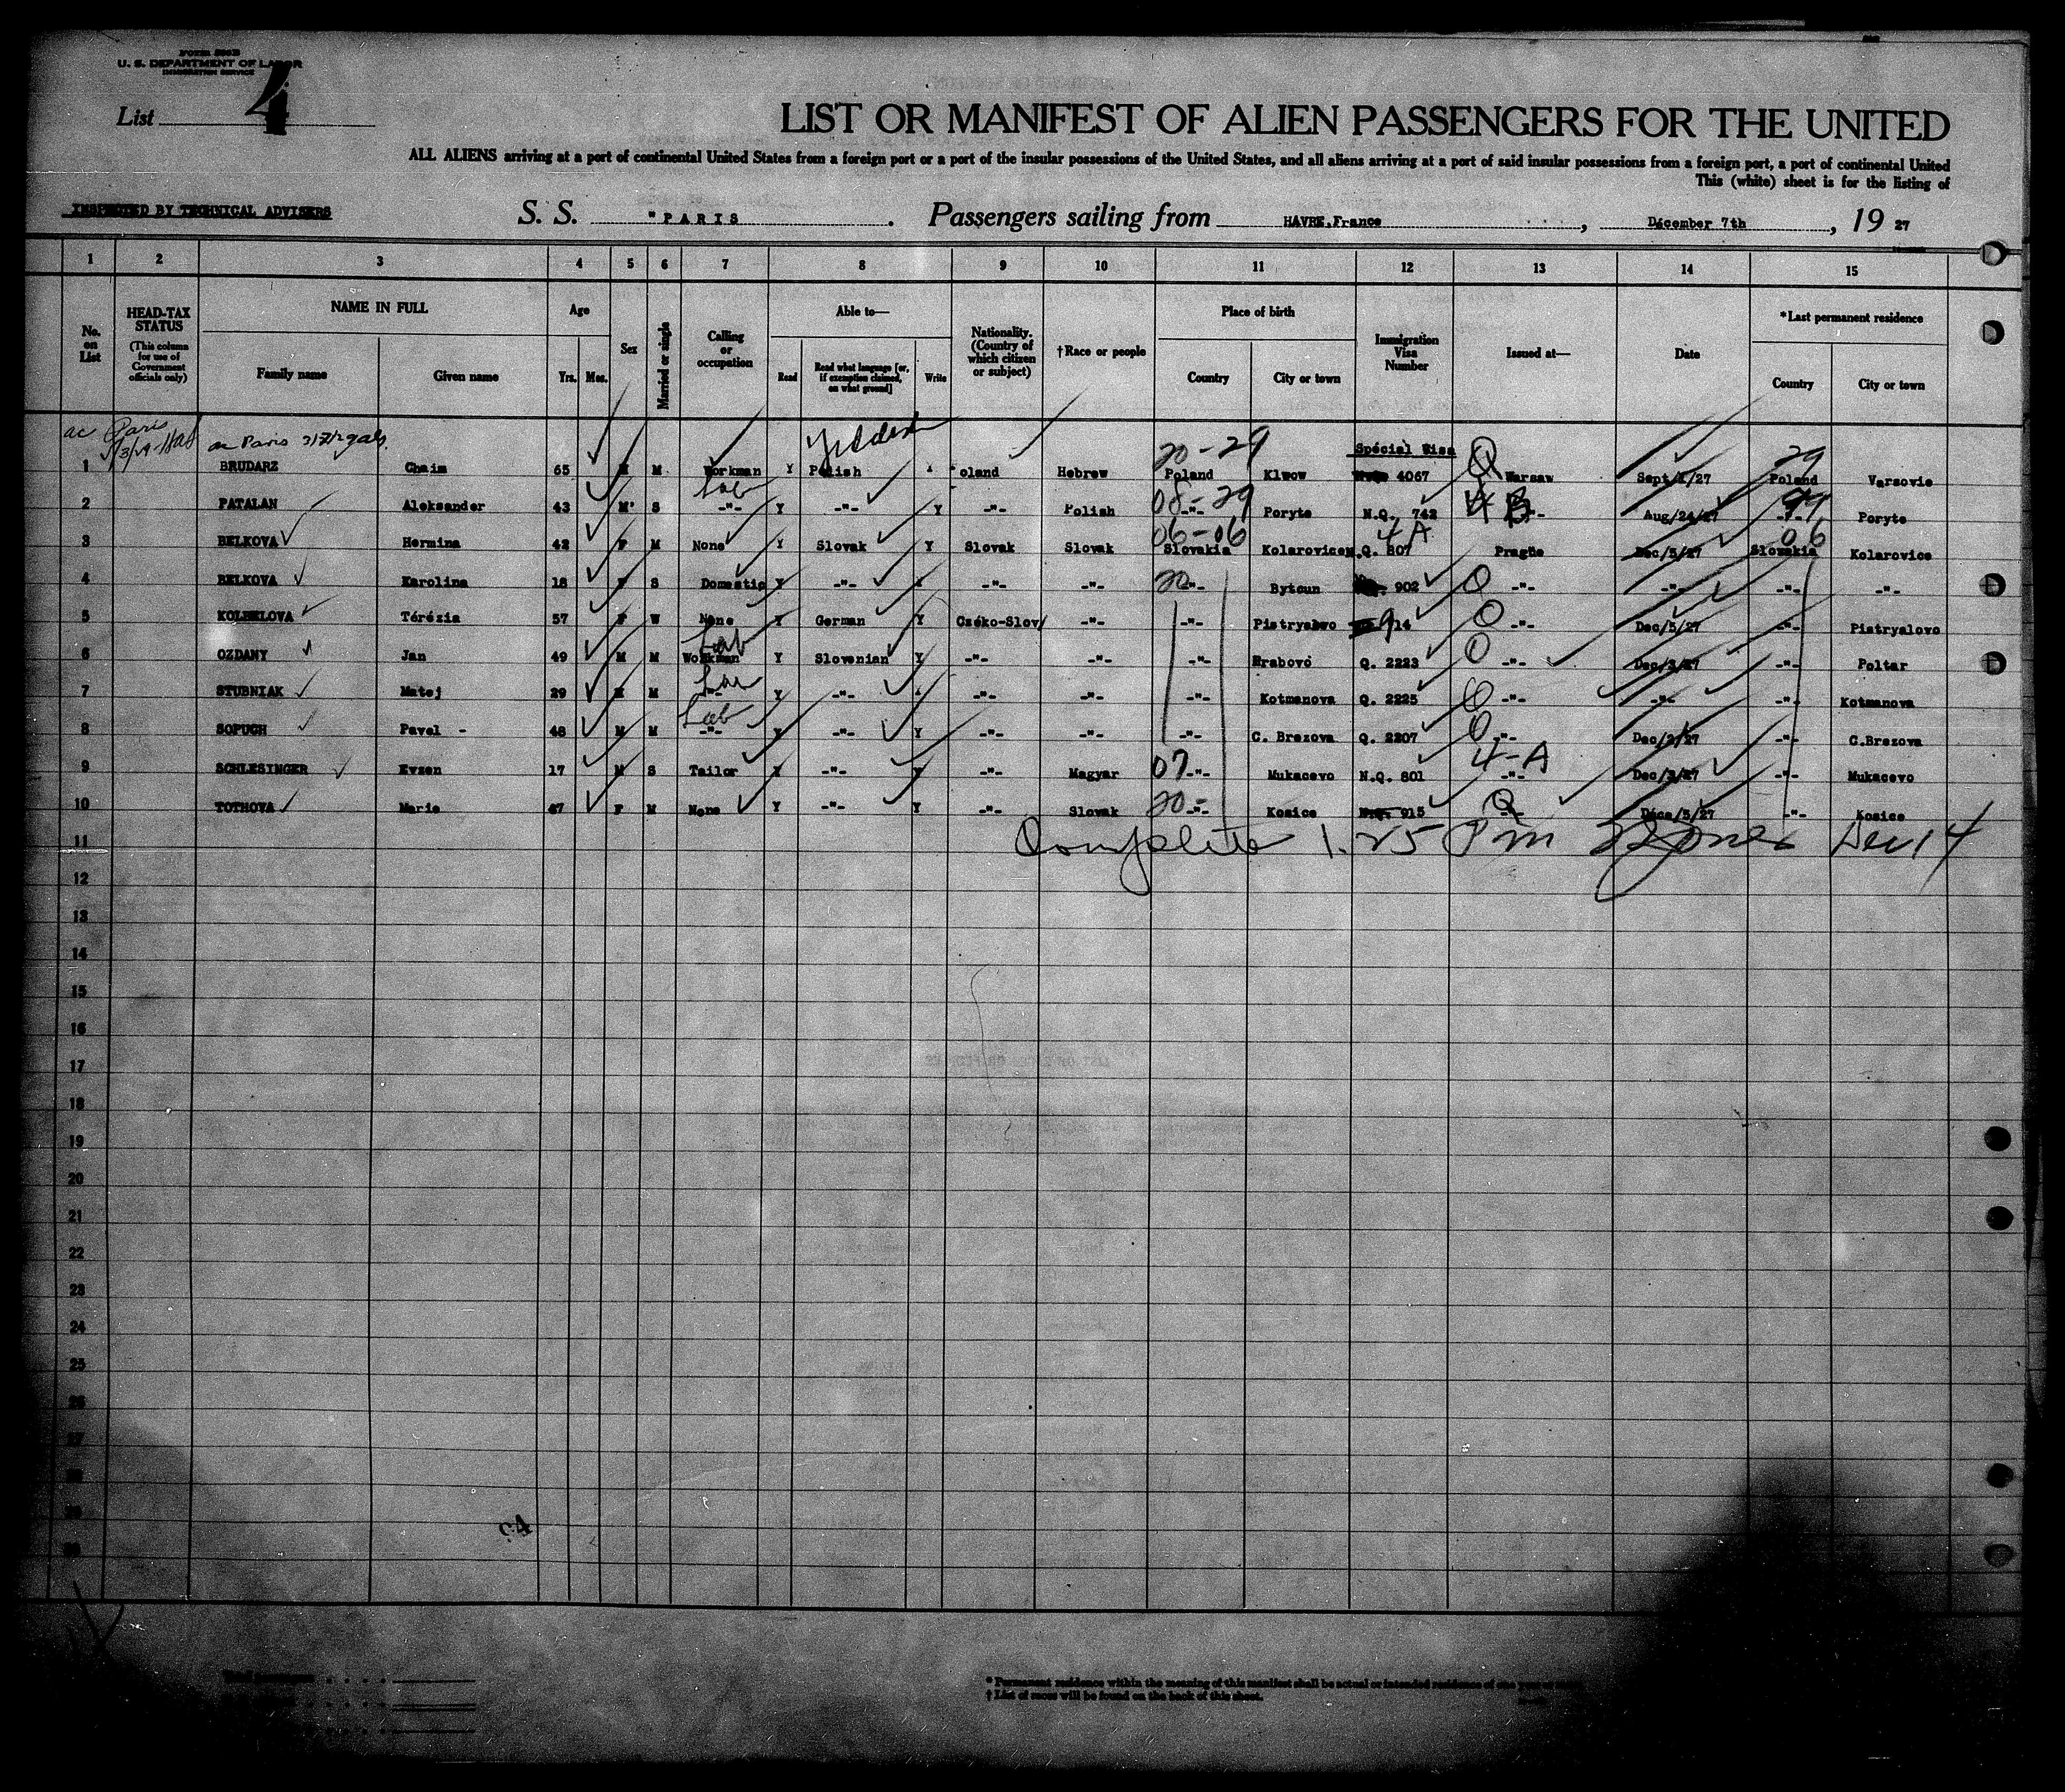 FORM 500B
U. S. DEPARTMENT OF LABOR
IMMIGRATION SERVICE
List 4
LIST OR MANIFEST OF ALIEN PASSENGERS FOR THE UNITED
ALL ALIENS arriving at a port of continental United States from a foreign port or a port of the insular possessions of the United States, and all aliens arriving at a port of said insular possessions from a foreign port, a port of continental United
This (white) sheet is for the listing of
INSPECTED BY TECHNICAL ADVISERS
S. S. "PARIS . Passengers sailing from HAVRE,France , Décember 7th , 19 27
1 2 3 4 5 6 7 8 9 10 11 12 13 14 15
No. on List
HEAD-TAX STATUS (This column for use of Government officials only)
NAME IN FULL Family name Given name
Age Yrs. Mos.
Sex
Married or single
Calling or occupation
Able to— Read Read what language [or, if exemption claimed, on what ground] Write
Nationality. (Country of which citizen or subject)
†Race or people
Place of birth Country City or town
Immigration Visa Number
Issued at—
Date
*Last permanent residence Country City or town
ac Paris
ac Paris Yiddish 20-29 Spécial Visa Q 29
1 BRUDARZ Chaim 65 M M Workman Y Polish oland Hebrew Poland Klwow 4067 Warsaw Sept/1/27 Poland Varsovie
Lab 08-29 4B
2 PATALAN Aleksander 43 M S -"- Y -"- Y -"- Polish -"- Poryte N.Q. 742 -"- Aug/24/27 -"- Poryte
06-06 4A 06
3 BELKOVA Hermina 42 F M None Y Slovak Y Slovak Slovak Slovakia Kolarovice N.Q. 807 Prague Dec/5/27 Slovakia Kolarovice
4 BELKOVA Karolina 18 F S Domestic Y -"- -"- -"- 20 -"- Bytcun 902 Q -"- -"- -"- -"-
5 KOLBELOVA Térézia 57 F W None Y German Y Czéko-Slov/ -"- -"- Pistryalovo 914 Q -"- Dec/5/27 -"- Pistryalovo
Lab
6 OZDANY Jan 49 M M Workman Y Slovenian Y -"- -"- -"- Hrabovo Q. 2223 Q -"- Dec/3/27 -"- Poltar
Lab
7 STUBNIAK Matej 29 M M -"- Y -"- -"- -"- -"- Kotmanova Q. 2225 Q -"- -"- -"- Kotmanova
Lab
8 SOPUCH Pavel - 48 M M -"- Y -"- Y -"- -"- -"- C. Brezova Q. 2207 Q -"- Dec/2/27 -"- C.Brezova
9 SCHLESINGER Evzen 17 M S Tailor Y -"- Y -"- Magyar 07 -"- Mukacevo N.Q. 801 4-A -"- Dec/3/27 -"- Mukacevo
10 TOTHOVA Marie 47 F M None Y -"- Y -"- Slovak 20 -"- Kosice N.Q. 915 Q -"- Déce/5/27 -"- Kosice
11 Complete 1.25 Pm Dec 14
12
13
14
15
16
17
18
19
20
21
22
23
24
25
26
27
28
29
30
94
* Permanent residence within the meaning of this manifest shall be actual or intended residence of one year
† List of races will be found on the back of this sheet.